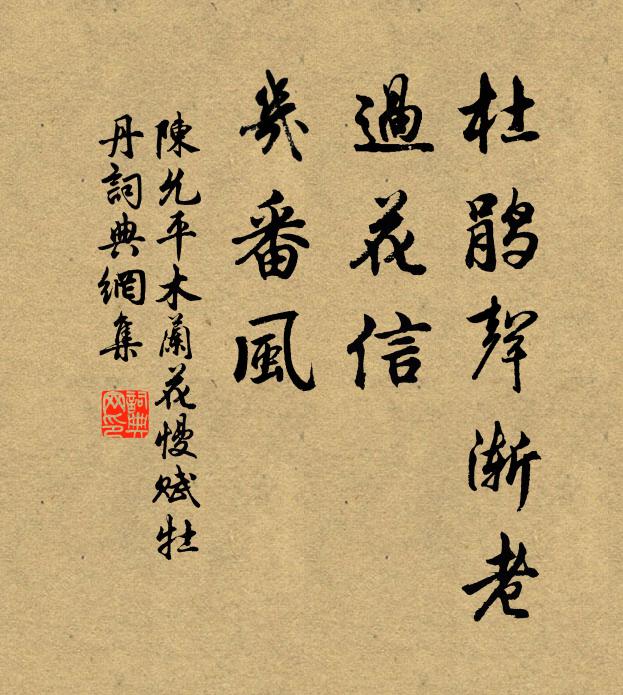 杜鹃聲渐老
過花信
幾番風
陳允平木蘭花慢赋牡
丹詞典網集
詞典
网印